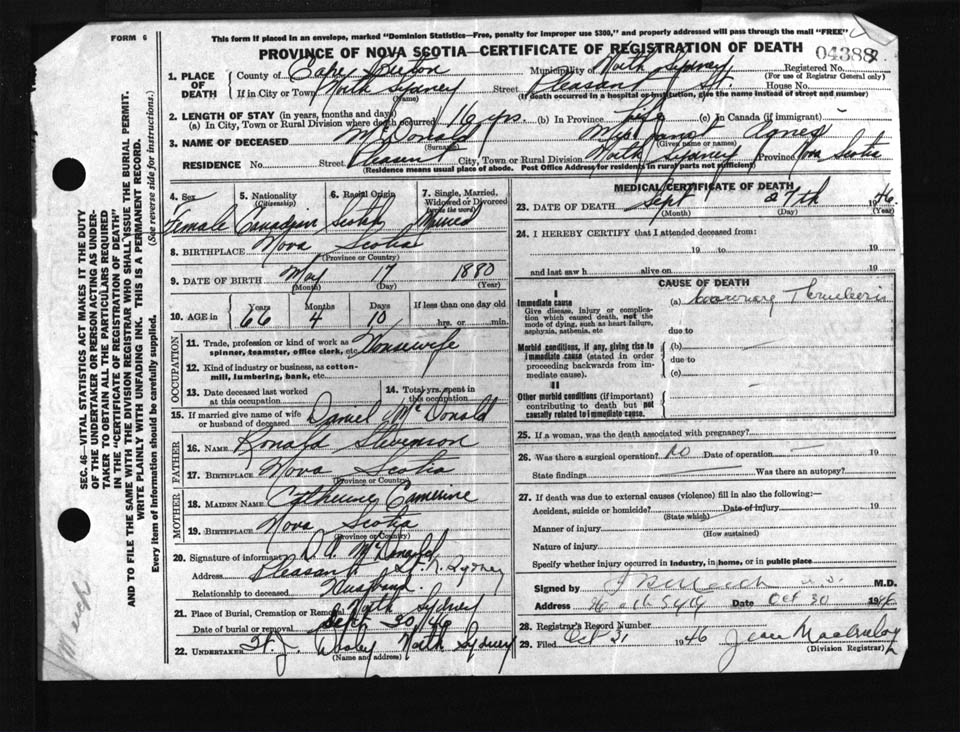 FORM 6
This form if placed in an envelope, marked "Dominion Statistics—Free, penalty for improper use $300," and properly addressed will pass through the mail "FREE"
PROVINCE OF NOVA SCOTIA—CERTIFICATE OF REGISTRATION OF DEATH
04388
1. PLACE OF DEATH
County of Cape Breton Municipality of North Sydney Registered No.
(For use of Registrar General only)
If in City or Town North Sydney Street Pleasant St. House No.
(Name) (If death occurred in a hospital or institution, give the name instead of street and number)
2. LENGTH OF STAY (in years, months and days)
(a) In City, Town or Rural Division where death occurred 16 yrs. (b) In Province life (c) In Canada (if immigrant)
3. NAME OF DECEASED McDonald Mrs Janet Agnes
(Surname) (Given name or names)
RESIDENCE No. Street Pleasant City, Town or Rural Division North Sydney Province Nova Scotia
(Residence means usual place of abode. Post Office Address for residents in rural parts not sufficient)
4. Sex 5. Nationality (Citizenship) 6. Racial Origin 7. Single, Married, Widowed or Divorced (write the word)
Female Canadian Scotch Married
8. BIRTHPLACE Nova Scotia
(Province or Country)
9. DATE OF BIRTH May 17 1880
(Month) (Day) (Year)
10. AGE in Years Months Days If less than one day old
66 4 10 hrs. or min.
OCCUPATION
11. Trade, profession or kind of work as spinner, teamster, office clerk, etc. Housewife
12. Kind of industry or business, as cotton-mill, lumbering, bank, etc.
13. Date deceased last worked at this occupation
14. Total yrs. spent in this occupation
15. If married give name of wife or husband of deceased Daniel McDonald
FATHER
16. NAME Ronald Stevenson
17. BIRTHPLACE Nova Scotia
(Province or Country)
MOTHER
18. MAIDEN NAME Catherine
19. BIRTHPLACE Nova Scotia
(Province or Country)
20. Signature of informant D. A. McDonald
Address Pleasant St. N. Sydney
Relationship to deceased Husband
21. Place of Burial, Cremation or Removal North Sydney
Date of burial or removal Sept 30/46
22. UNDERTAKER North Sydney
(Name and address)
MEDICAL CERTIFICATE OF DEATH
23. DATE OF DEATH Sept 27th 1946.
(Month) (Day) (Year)
24. I HEREBY CERTIFY that I attended deceased from:
19 to 19
and last saw h alive on 19
CAUSE OF DEATH
I
Immediate cause
Give disease, injury or complication which caused death, not the mode of dying, such as heart failure, asphyxia, asthenia, etc
(a) Coronary
due to
Morbid conditions, if any, giving rise to immediate cause (stated in order proceeding backwards from immediate cause).
(b)
due to
(c)
II
Other morbid conditions (if important) contributing to death but not causally related to immediate cause.
25. If a woman, was the death associated with pregnancy?
26. Was there a surgical operation? no Date of operation 19
State findings Was there an autopsy?
27. If death was due to external causes (violence) fill in also the following:—
Accident, suicide or homicide? Date of injury 19
(State which)
Manner of injury
(How sustained)
Nature of injury
Specify whether injury occurred in industry, in home, or in public place
Signed by M.D.
Address Date Oct 30 19
28. Registrar's Record Number
29. Filed Oct 31 1946 Jean
(Division Registrar)
SEC. 46—VITAL STATISTICS ACT MAKES IT THE DUTY
OF THE UNDERTAKER OR PERSON ACTING AS UNDERTAKER TO OBTAIN ALL THE PARTICULARS REQUIRED
IN THE "CERTIFICATE OF REGISTRATION OF DEATH"
AND TO FILE THE SAME WITH THE DIVISION REGISTRAR WHO SHALL ISSUE THE BURIAL PERMIT.
WRITE PLAINLY WITH UNFADING INK. THIS IS A PERMANENT RECORD.
Every item of information should be carefully supplied. (See reverse side for instructions.)